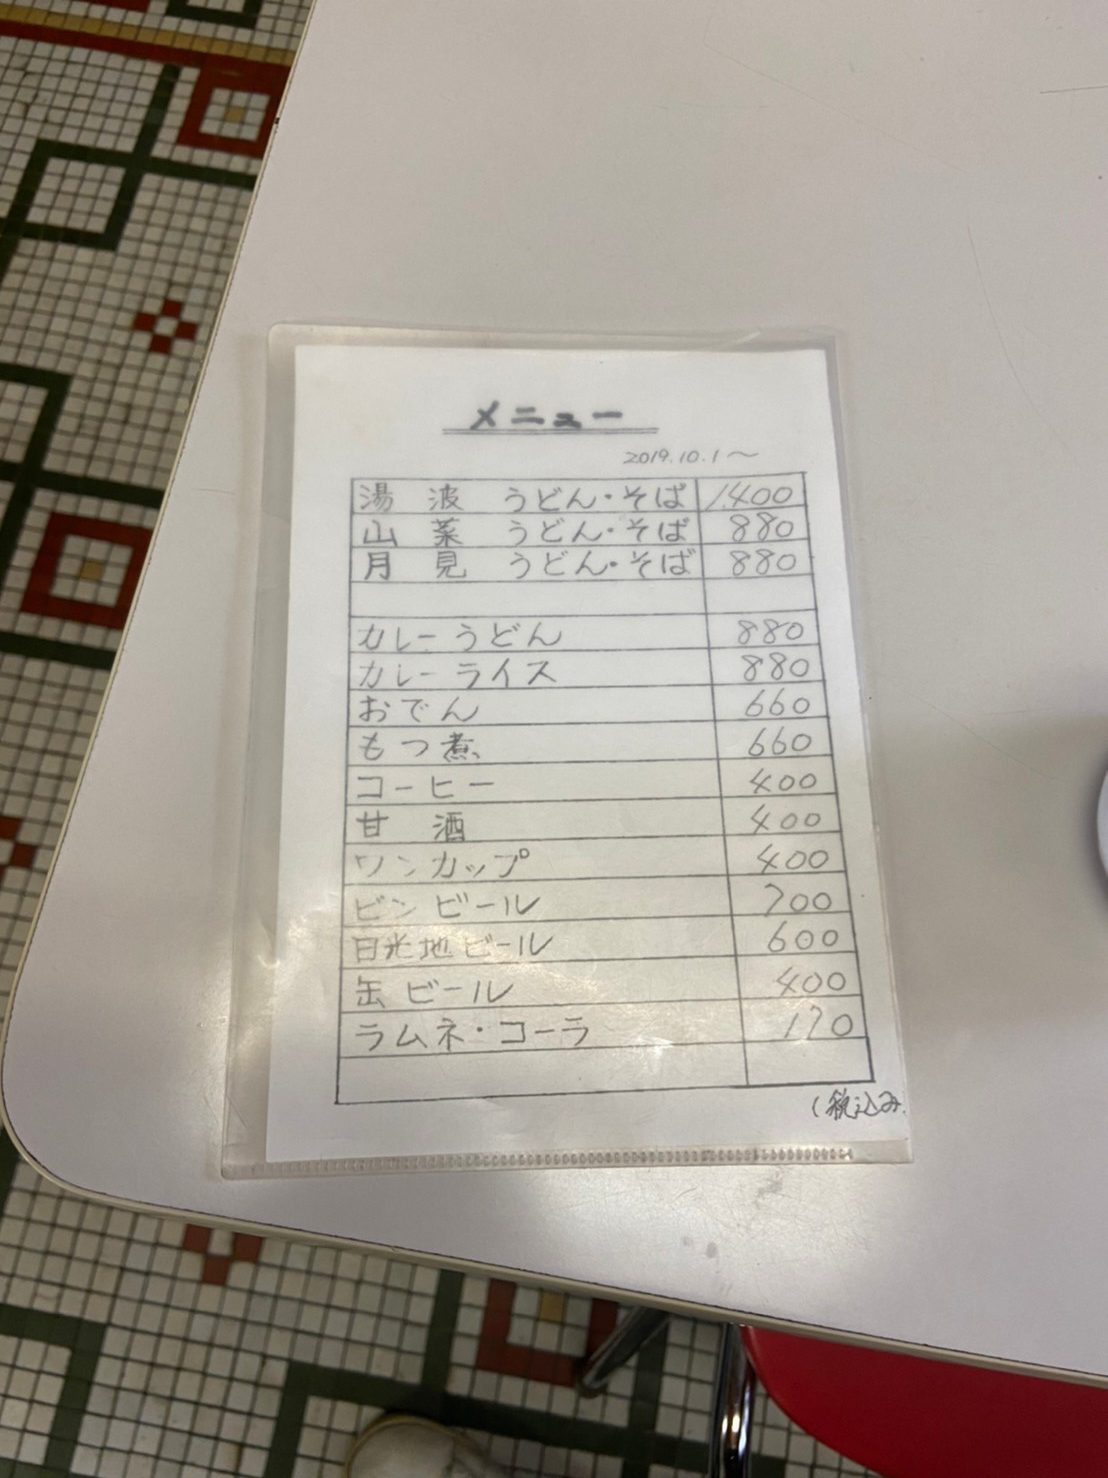 メニュー
2019.10.1〜
湯波 うどん・そば 1,400
山菜 うどん・そば 880
月見 うどん・そば 880
カレーうどん 880
カレーライス 880
おでん 660
もつ煮 660
コーヒー 400
甘酒 400
ワンカップ 400
ビンビール 700
日光地ビール 600
缶ビール 400
ラムネ・コーラ 170
(税込み